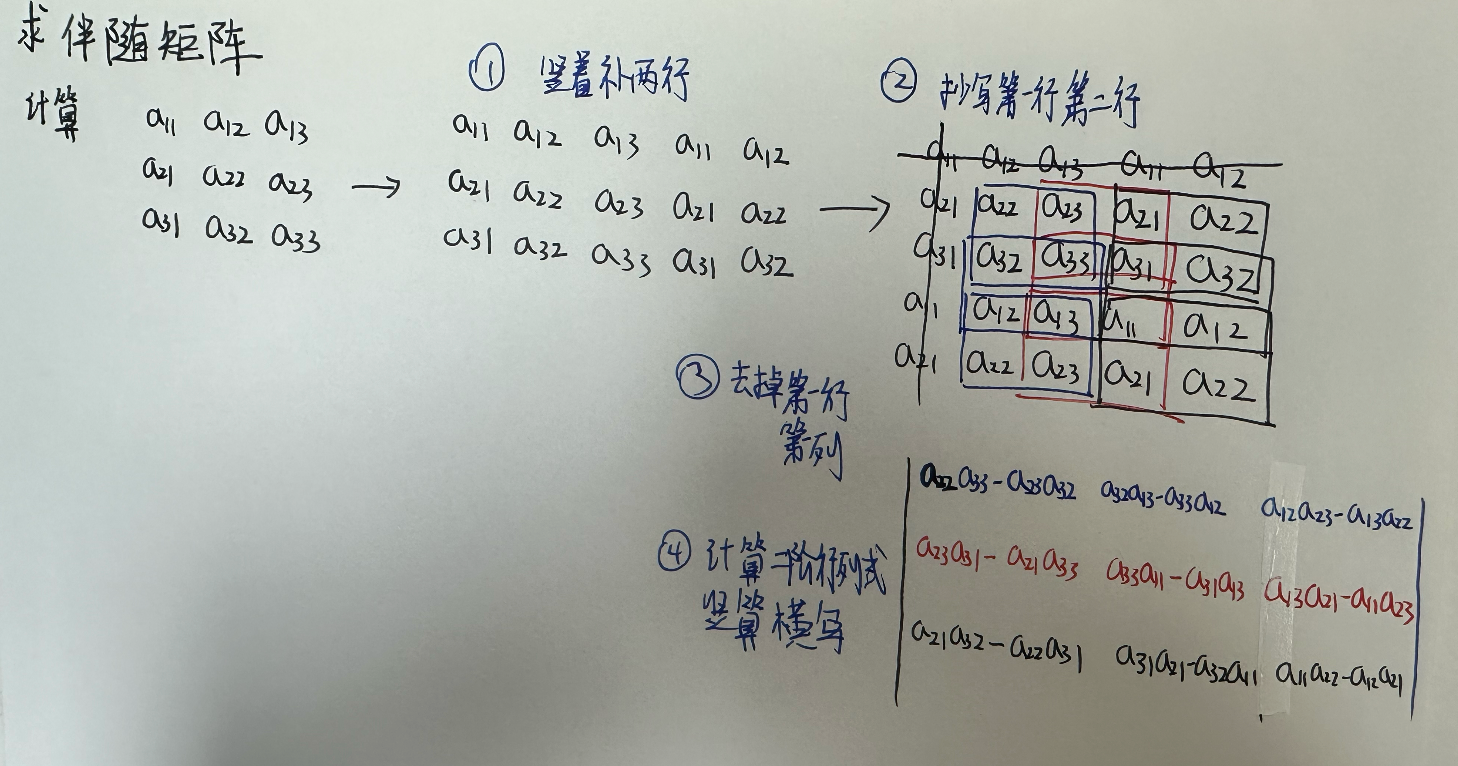 求伴随矩阵
计算
a₁₁ a₁₂ a₁₃
a₂₁ a₂₂ a₂₃
a₃₁ a₃₂ a₃₃
→
① 竖着补两行
a₁₁ a₁₂ a₁₃ a₁₁ a₁₂
a₂₁ a₂₂ a₂₃ a₂₁ a₂₂
a₃₁ a₃₂ a₃₃ a₃₁ a₃₂
→
② 抄写第一行第二行
a₁₁ a₁₂ a₁₃ a₁₁ a₁₂
a₂₁ a₂₂ a₂₃ a₂₁ a₂₂
a₃₁ a₃₂ a₃₃ a₃₁ a₃₂
a₁₁ a₁₂ a₁₃ a₁₁ a₁₂
a₂₁ a₂₂ a₂₃ a₂₁ a₂₂
③ 去掉第一行
第列
④ 计算二阶行列式
竖算横写
a₂₂a₃₃-a₂₃a₃₂ a₃₂a₁₃-a₃₃a₁₂ a₁₂a₂₃-a₁₃a₂₂
a₂₃a₃₁-a₂₁a₃₃ a₃₃a₁₁-a₃₁a₁₃ a₁₃a₂₁-a₁₁a₂₃
a₂₁a₃₂-a₂₂a₃₁ a₃₁a₂₁-a₃₂a₁₁ a₁₁a₂₂-a₁₂a₂₁